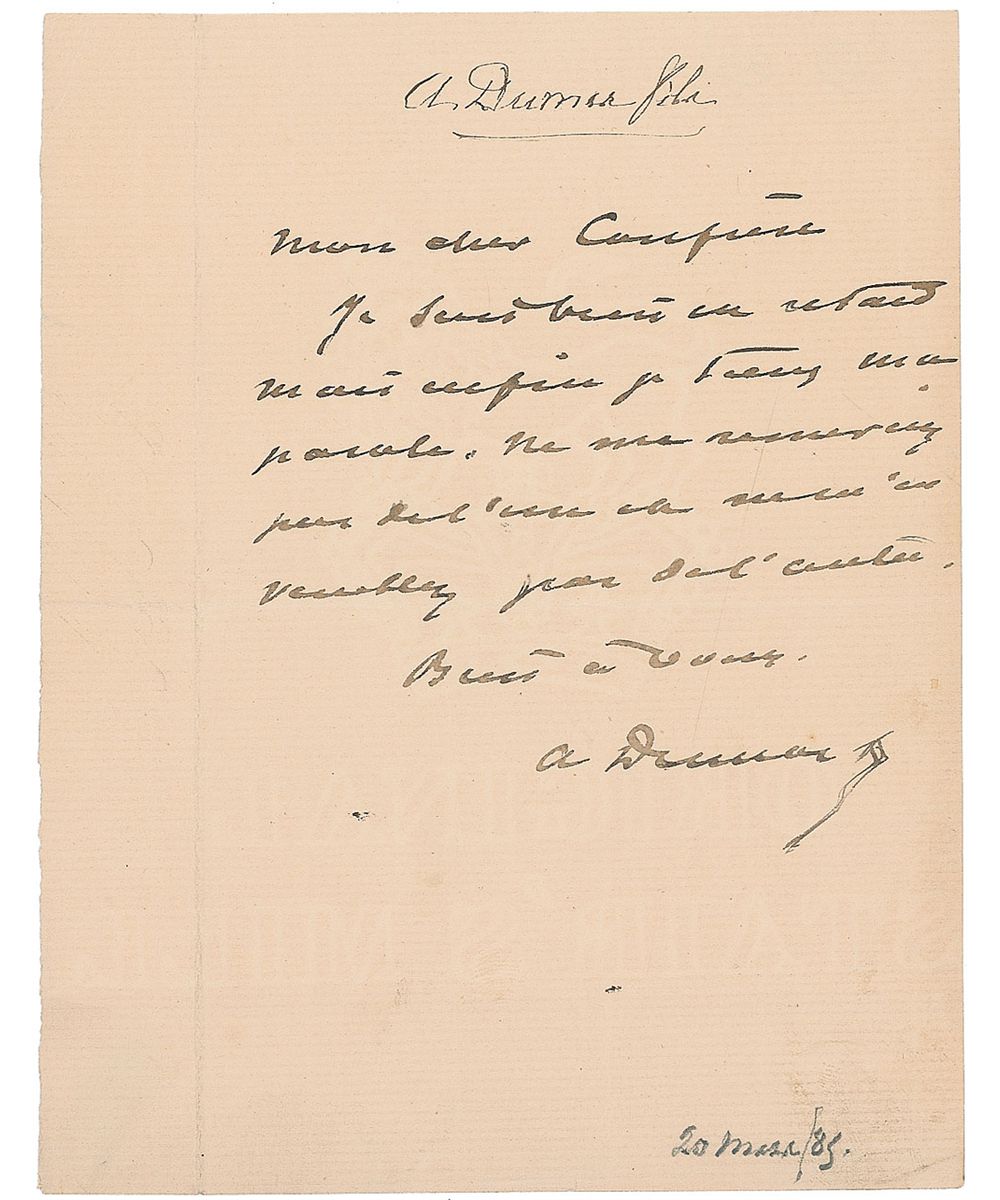 A. Dumas fils
Mon cher Confrère
Je suis bien en retard
mais enfin je tiens ma
parole. Ne me remerciez
pas de l'un et ne m'en
veuillez pas de l'autre.
Bien à vous.
A Dumas f
20 Mars/85.